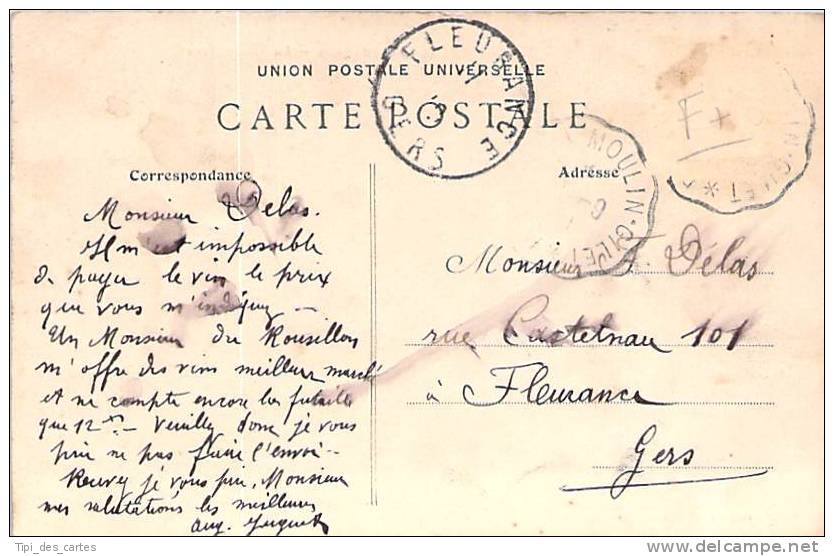 UNION POSTALE UNIVERSELLE
CARTE POSTALE
FLEURANCE
GERS
MOULIN-GILET
IN-GILET *
F+
Correspondance
Adresse
Monsieur Délas.
Il m'est impossible
de payer le vin le prix
que vous m'indiquez —
Un Monsieur du Rousillon
m'offre des vins meilleur marché
et ne compte encore les futailles
que 12 — Veuillez donc je vous
prie ne pas faire l'envoi —
Recevez je vous prie, Monsieur
mes salutations les meilleures
Aug.
Monsieur F. Délas
rue Castelnau 101
à Fleurance
Gers
Tipi_des_cartes
delcampe.net